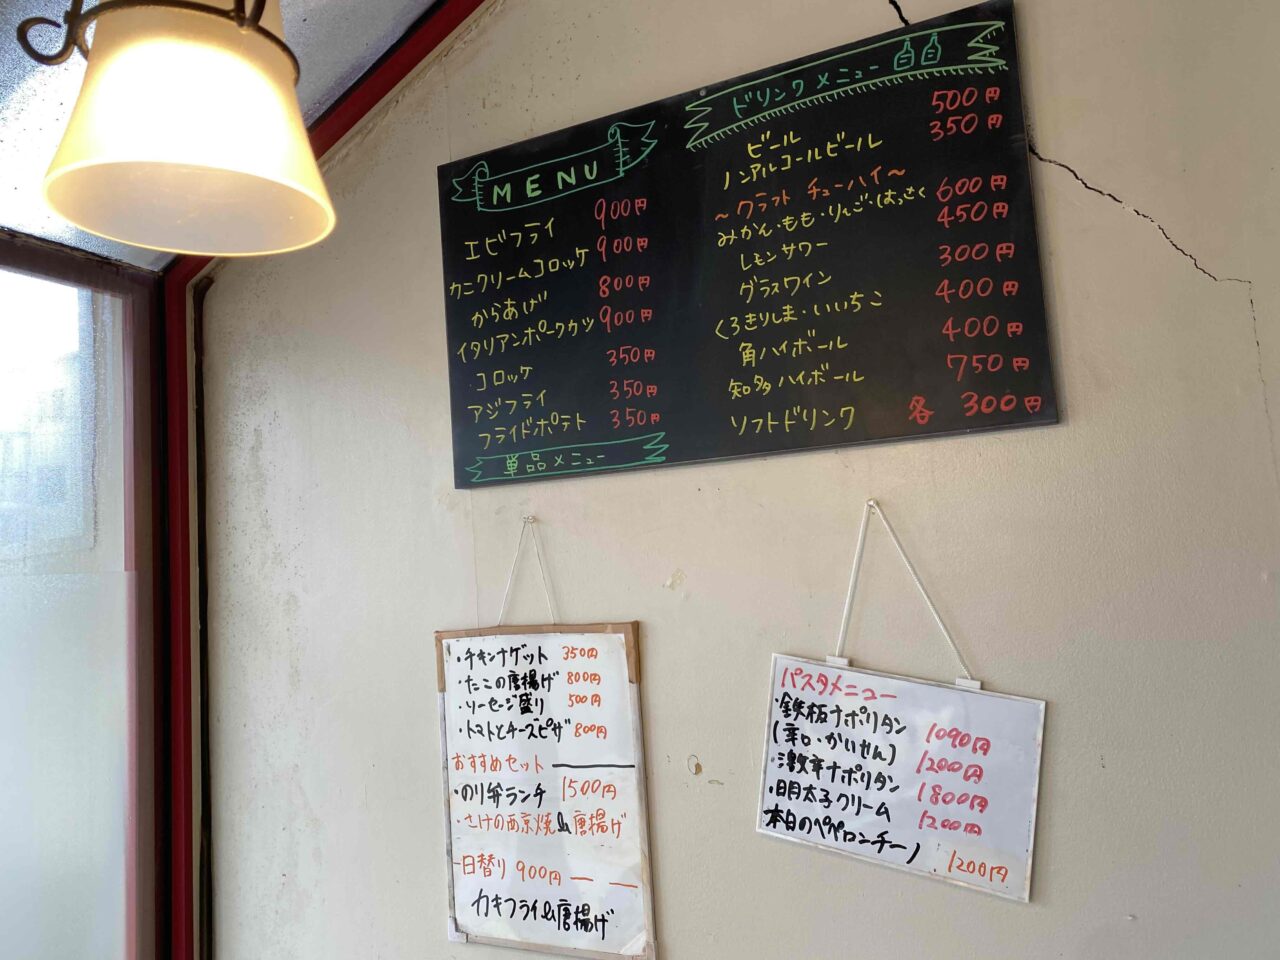 MENU
エビフライ 900円
カニクリームコロッケ 900円
からあげ 800円
イタリアンポークカツ 900円
・コロッケ 350円
アジフライ 350円
フライドポテト 350円
単品メニュー
ドリンクメニュー
ビール 500円
ノンアルコールビール 350円
～クラフトチューハイ～
みかん・もも・りんご・はっさく 600円
レモンサワー 450円
グラスワイン 300円
くろきりしま・いいちこ 400円
角ハイボール 400円
知多ハイボール 750円
ソフトドリンク 各 300円
・チキンナゲット 350円
・たこの唐揚げ 800円
・ソーセージ盛り 500円
・トマトとチーズピザ 800円
おすすめセット
・のり弁ランチ 1500円
・さけの西京焼&唐揚げ
日替り 900円
カキフライ&唐揚げ
パスタメニュー
・鉄板ナポリタン 1090円
(辛口・かいせん) 1200円
・激辛ナポリタン 1800円
・明太子クリーム 1200円
本日のペペロンチーノ 1200円